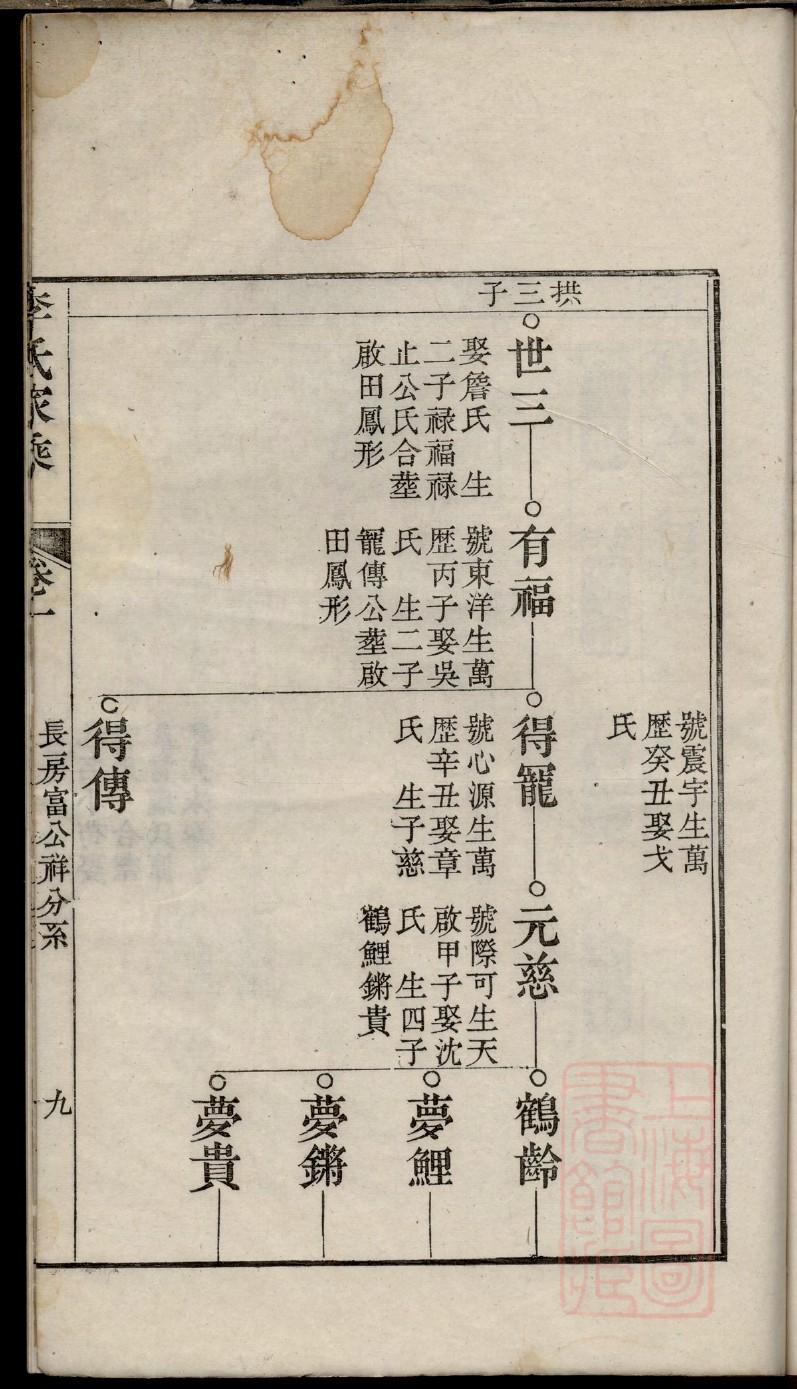 拱三子
號震宇生萬
歷癸丑娶戈
氏
世三
娶詹氏　生
二子禄福禄
止公氏合塟
啟田鳳形
有福
號東洋生萬
歷丙子娶吳
氏　生二子
寵傳公塟啟
田鳳形
得寵
號心源生萬
歷辛丑娶章
氏　生子慈
元慈
號際可生天
啟甲子娶沈
氏　生四子
鶴鯉鏘貴
鶴齡
夢鯉
夢鏘
夢貴
得傳
李氏家乘
卷一
長房富公祥分系
九
上海圖
書館藏